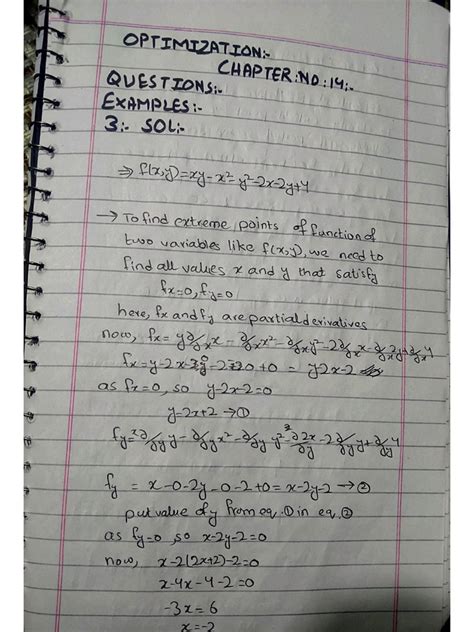 OPTIMIZATION:-
CHAPTER:NO:14:-
QUESTIONS:-
EXAMPLES:-
3:- SOL:-
⇒ f(x,y)=xy-x²-y²-2x-2y+4
→ To find extreme points of function of
two variables like f(x,y), we need to
find all values x and y that satisfy
fx=0, fy=0
here, fx and fy are partial derivatives
now, fx= y∂/∂x x - ∂/∂x x² - ∂/∂x y² - 2∂/∂x x - ∂/∂x 2y + ∂/∂x 4
fx=y-2x-0-2-0+0 = y-2x-2
as fx=0, so y-2x-2=0
y-2x+2 → ①
fy= x∂/∂y y - ∂/∂y x² - ∂/∂y y² - ∂2x/∂y - 2∂/∂y y + ∂/∂y 4
fy = x-0-2y-0-2+0 = x-2y-2 → ②
put value of y from eq. ① in eq. ②
as fy=0, so x-2y-2=0
now, x-2(2x+2)-2=0
x-4x-4-2=0
-3x=6
x=-2